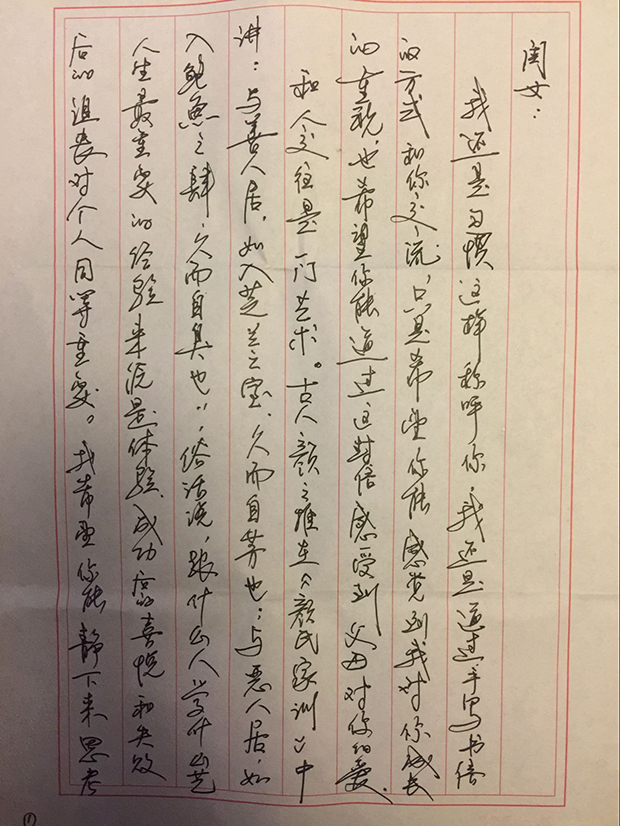 闺女：
我还是习惯这样称呼你，我还是通过手写书信
的方式和你交流，只是希望你能感觉到我对你成长
的重视，也希望你能通过这封信感受到父母对你的爱。
和人交往是一门艺术。古人颜之推在《颜氏家训》中
讲：与善人居，如入芝兰之室，久而自芳也；与恶人居，如
入鲍鱼之肆，久而自臭也；俗话说，跟什么人学什么艺
人生最重要的经验来说是体验，成功后的喜悦和失败
后的沮丧对个人同等重要。我希望你能静下来思考